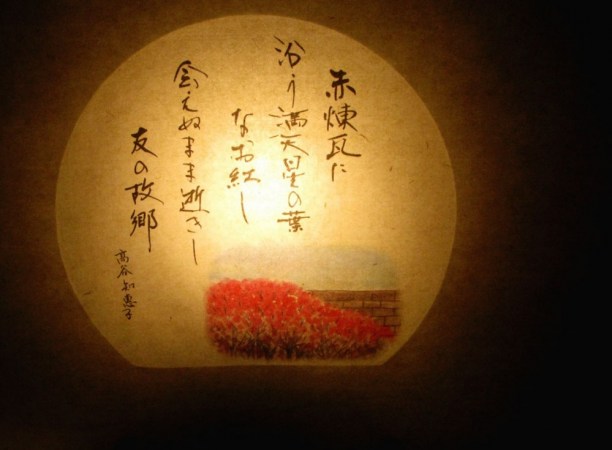 赤煉瓦に
沿う満天星の葉
なお紅し
会えぬまま逝きし
友の故郷
高谷和惠子